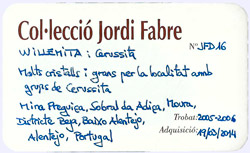 Col·lecció Jordi Fabre
WILLEMITA i Cerussita Nº JFD16
Molts cristalls i grans per la localitat amb
grups de Cerussita
Mina Preguiça, Sobral da Adiça, Moura,
Districte Beja, Baixo Alentejo,
Alentejo, Portugal
Trobat: 2005-2006
Adquisició: 19/05/2014